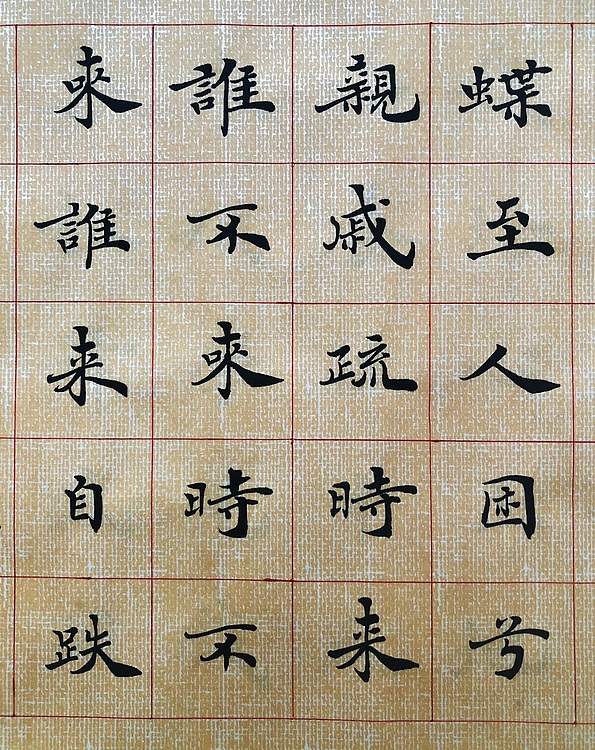 蝶至人困兮
親戚疏時来
誰不唻時不
唻誰来自跌